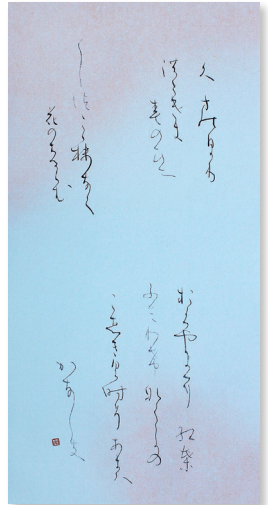 久かたのひかり
のとけき
春の日に
しつこゝろなく
花のちるらむ
おくやまに 紅葉
ふみわけ なくしかの
こゑきく時そ あきは
かなしき